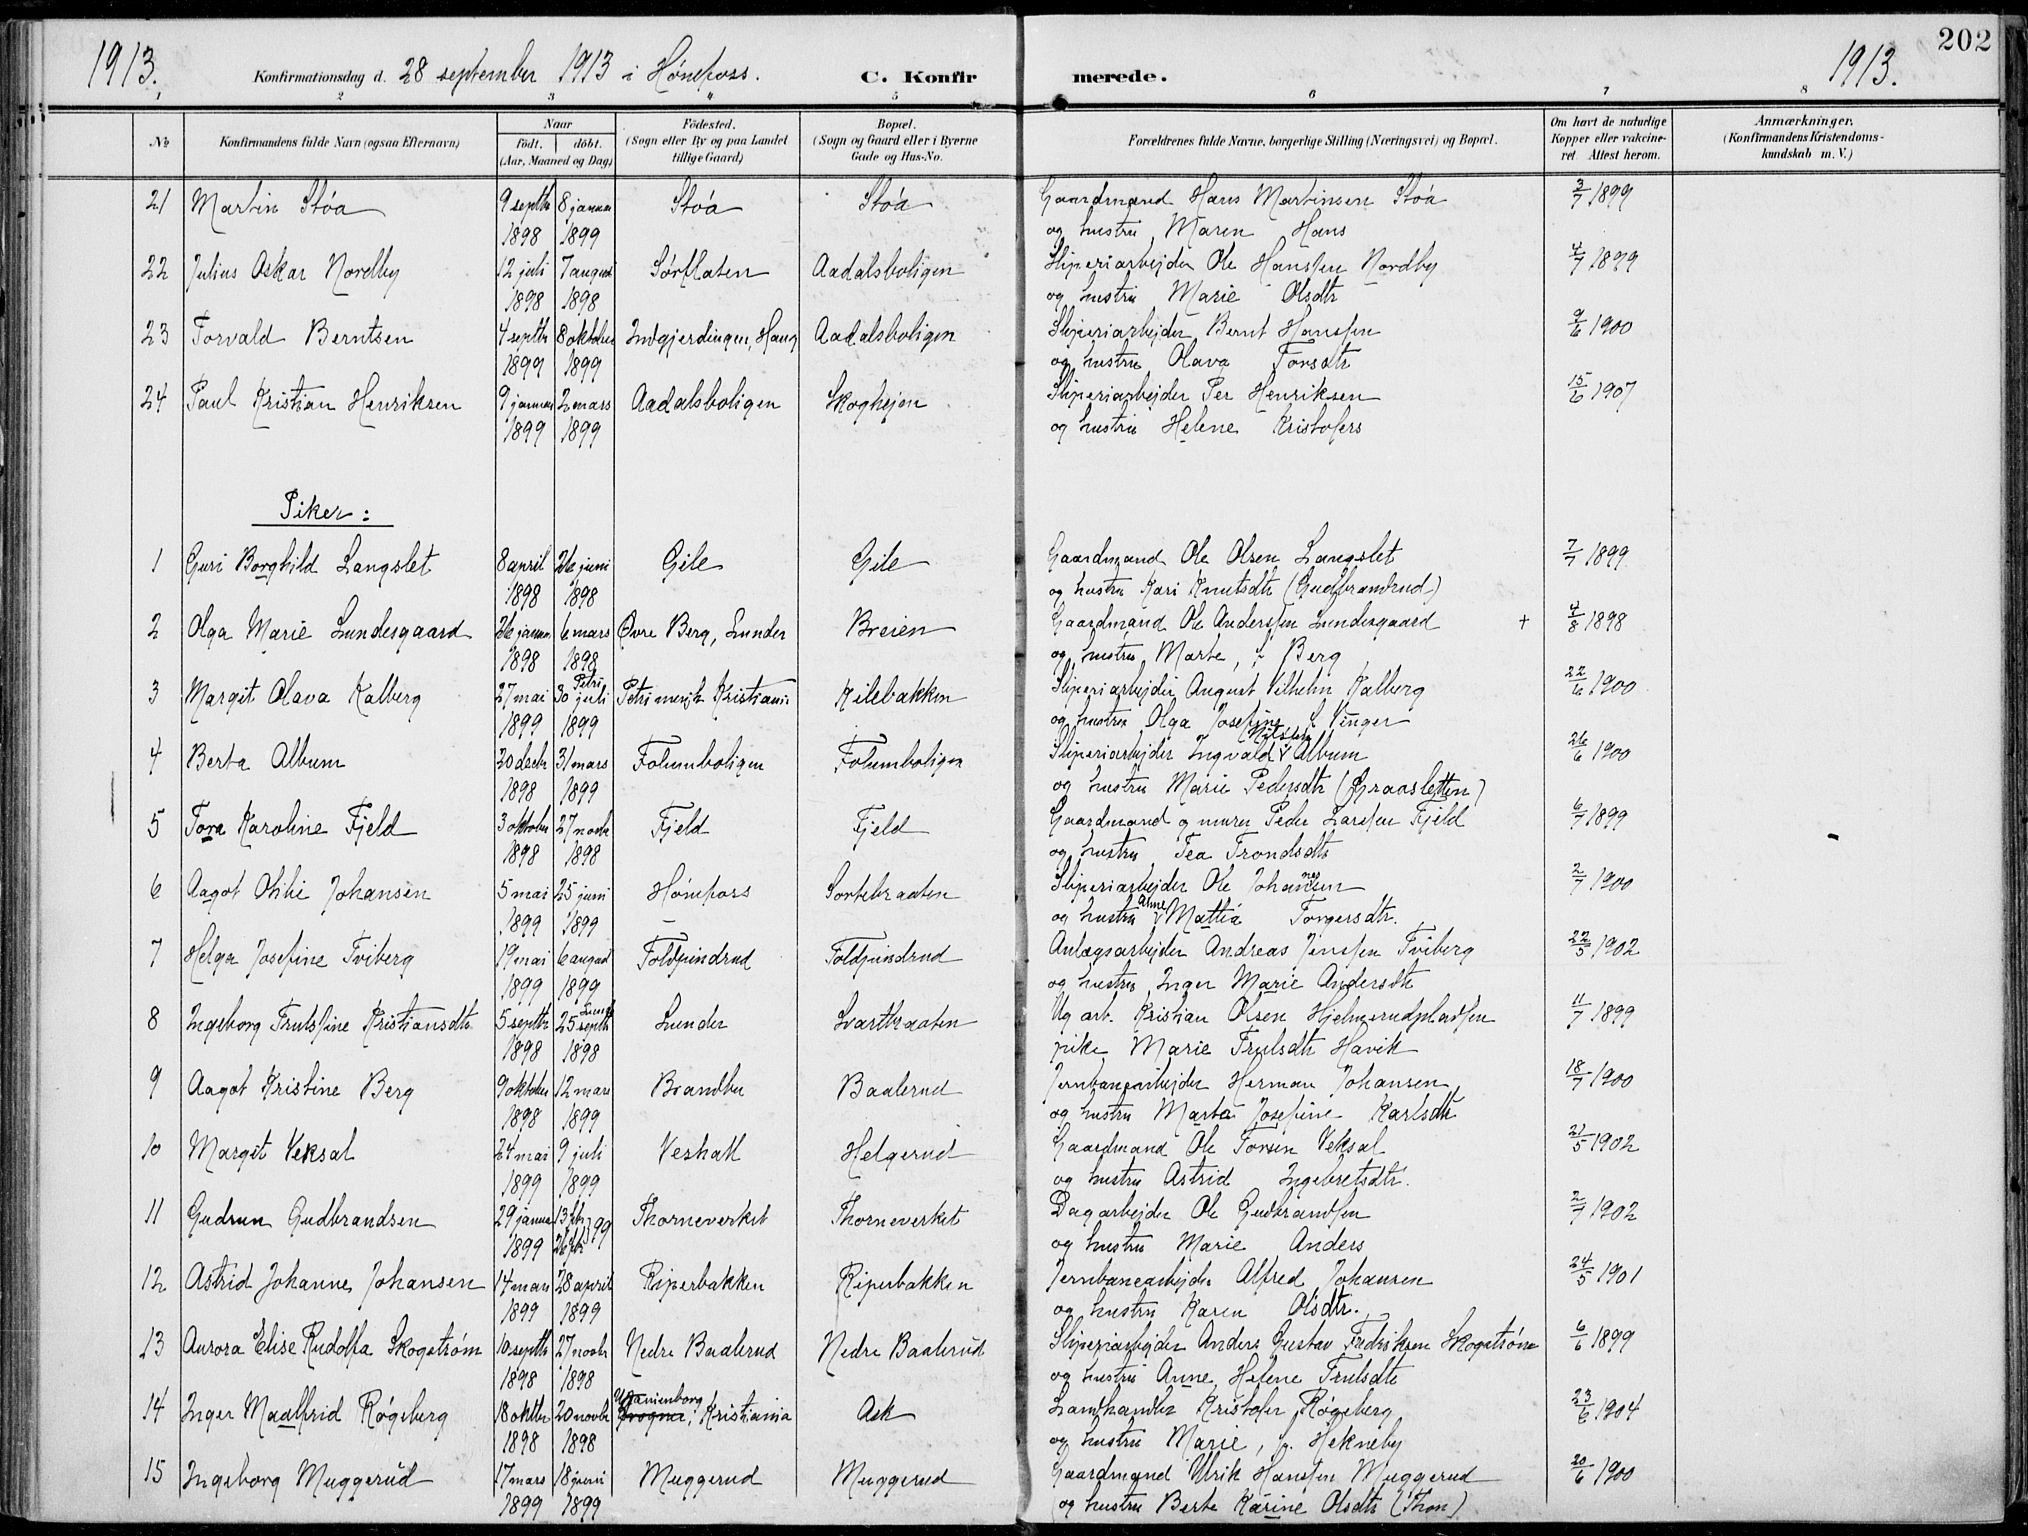 1913. Konfirmationsdag d. 28 september 1913 i Hønefoss. C. Konfirmerede. 1913. 202
1 2 3 4 5 6 7 8
No Konfirmandens fulde Navn (ogsaa Efternavn) Naar født. døbt. (Aar, Maaned og Dag) Fødested. (Sogn eller By og paa Landet tillige Gaard) Bopæl. (Sogn og Gaard eller i Byerne Gade og Hus-No. Forældrenes fulde Navne, borgerlige Stilling (Næringsvei) og Bopæl. Om havt de naturlige Kopper eller vakcineret Attest herom. Anmærkninger. (Konfirmandens Kristendomskundskab m. V.)
21 Martin Stóa 9 septbr 8 januar Stóa Stóa Gaardmand Hans Martinsen Stóa 3/7 1899
1898 1899 og hustru Maren Hans
22 Julius Oskar Nordby 12 juli 7 august Sørflaten Aadalsboligen Sliperiarbejder Ole Hanssen Nordby 4/7 1899
1898 1898 og hustru Marie Olsdtr
23 Torvald Berntsen 4 septbr 8 oktober Indgjerdingen, Haug Aadalsboligen Sliperiarbejder Bernt Hanssen 9/6 1900
1899 1899 og hustru Olava Torsdtr
24 Paul Kristian Henriksen 9 januar 2 mars Aadalsboligen Skoghejen Sliperiarbejder Per Henriksen 15/6 1907
1899 1899 og hustru Helene Kristofers
Piker:
1 Guri Borghild Langslet 8 april 26 juni Gile Gile Gaardmand Ole Olsen Langslet 7/7 1899
1898 1898 og hustru Kari Knutsdtr (Gudbrandsrud)
2 Olga Marie Lundesgaard 26 januar 6 mars Øvre Berg, Lunder Breien Gaardmand Ole Anderssen Lundesgaard + 4/8 1898
1898 1898 og hustru Marte, f. Berg
3 Margit Olava Kalberg 27 mai 30 juli Petri Petri menigh Kristiania Kilebakken Sliperiarbejder August Vilhelm Kalberg 22/6 1900
1899 1899 og hustru Olga Josefine f. Vinger
4 Berta Album 20 decbr 31 mars Folumboligen Folumboligen Sliperiarbejder Ingvald Nilssen Album 26/6 1900
1898 1899 og hustru Marie Pedersdtr (Braasletten)
5 Tora Karoline Fjeld 3 oktober 27 novbr Fjeld Fjeld Gaardmand og murer Peder Larssen Fjeld 6/7 1899
1898 1898 og hustru Tea Trondsdtr
6 Aagot Otilie Johansen 5 mai 25 juni Hønefoss Sortebraaten Sliperiarbejder Ole Johannesen 2/7 1900
1899 1899 og hustru Anne Mattia Torgersdtr.
7 Helga Josefine Tviberg 19 mai 6 august Foldpindrud Foldpindrud Anlægsarbejder Andreas Jenssen Tviberg 22/5 1902
1899 1899 og hustru Inger Marie Andersdtr
8 Ingeborg Trulsine Kristiansdtr. 5 septbr 25 septbr Lunder Svartbraaten Ug arb. Kristian Olsen Hjelmerudpladsen 11/7 1899
1898 1898 pike Marie Trulsdtr Havik
9 Aagot Kristine Berg 9 oktober 12 mars Brandbu Baalerud Jernbanearbejder Herman Johansen, 18/7 1900
1898 1899 og hustru Marta Josefine Karlsdtr
10 Margit Veksal 24 mai 9 juli Veshall Helgerud Gaardmand Ole Torsen Veksal 21/5 1902
1899 1899 og hustru Astrid Ingebretsdtr.
11 Gudrun Gudbrandsen 29 januar 13 fbr 99 Thorneverket Thorneverket Dagarbejder Ole Gudbrandssen 2/7 1902
1899 26 fbr og hustru Marie Anders
12 Astrid Johanne Johansen 14 mars 28 april Riperbakken Riperbakken Jernbanearbejder Alfred Johansen 24/5 1901
1899 1899 og hustru Karen Olsdtr.
13 Aurora Elise Rudolfa Skogstrøm 10 septbr 27 novbr Nedre Baalerud Nedre Baalerud Sliperiarbejder Anders Gustav Fredriksen Skogstrøm 6/6 1899
1898 1898 og hustru Anne Helene Trulsdtr
14 Inger Maalfrid Røgeberg 18 oktbr 20 novbr Uranienborg Frogner, Kristiania Ask Landhandler Kristofer Røgeberg 23/6 1904
1898 1898 og hustru Marie, f. Hekneby
15 Ingeborg Muggerud 17 mars 18 juni Muggerud Muggerud Gaardmand Ulrik Hanssen Muggerud 20/6 1900
1899 1899 og hustru Berte Karine Olsdtr (Thon)